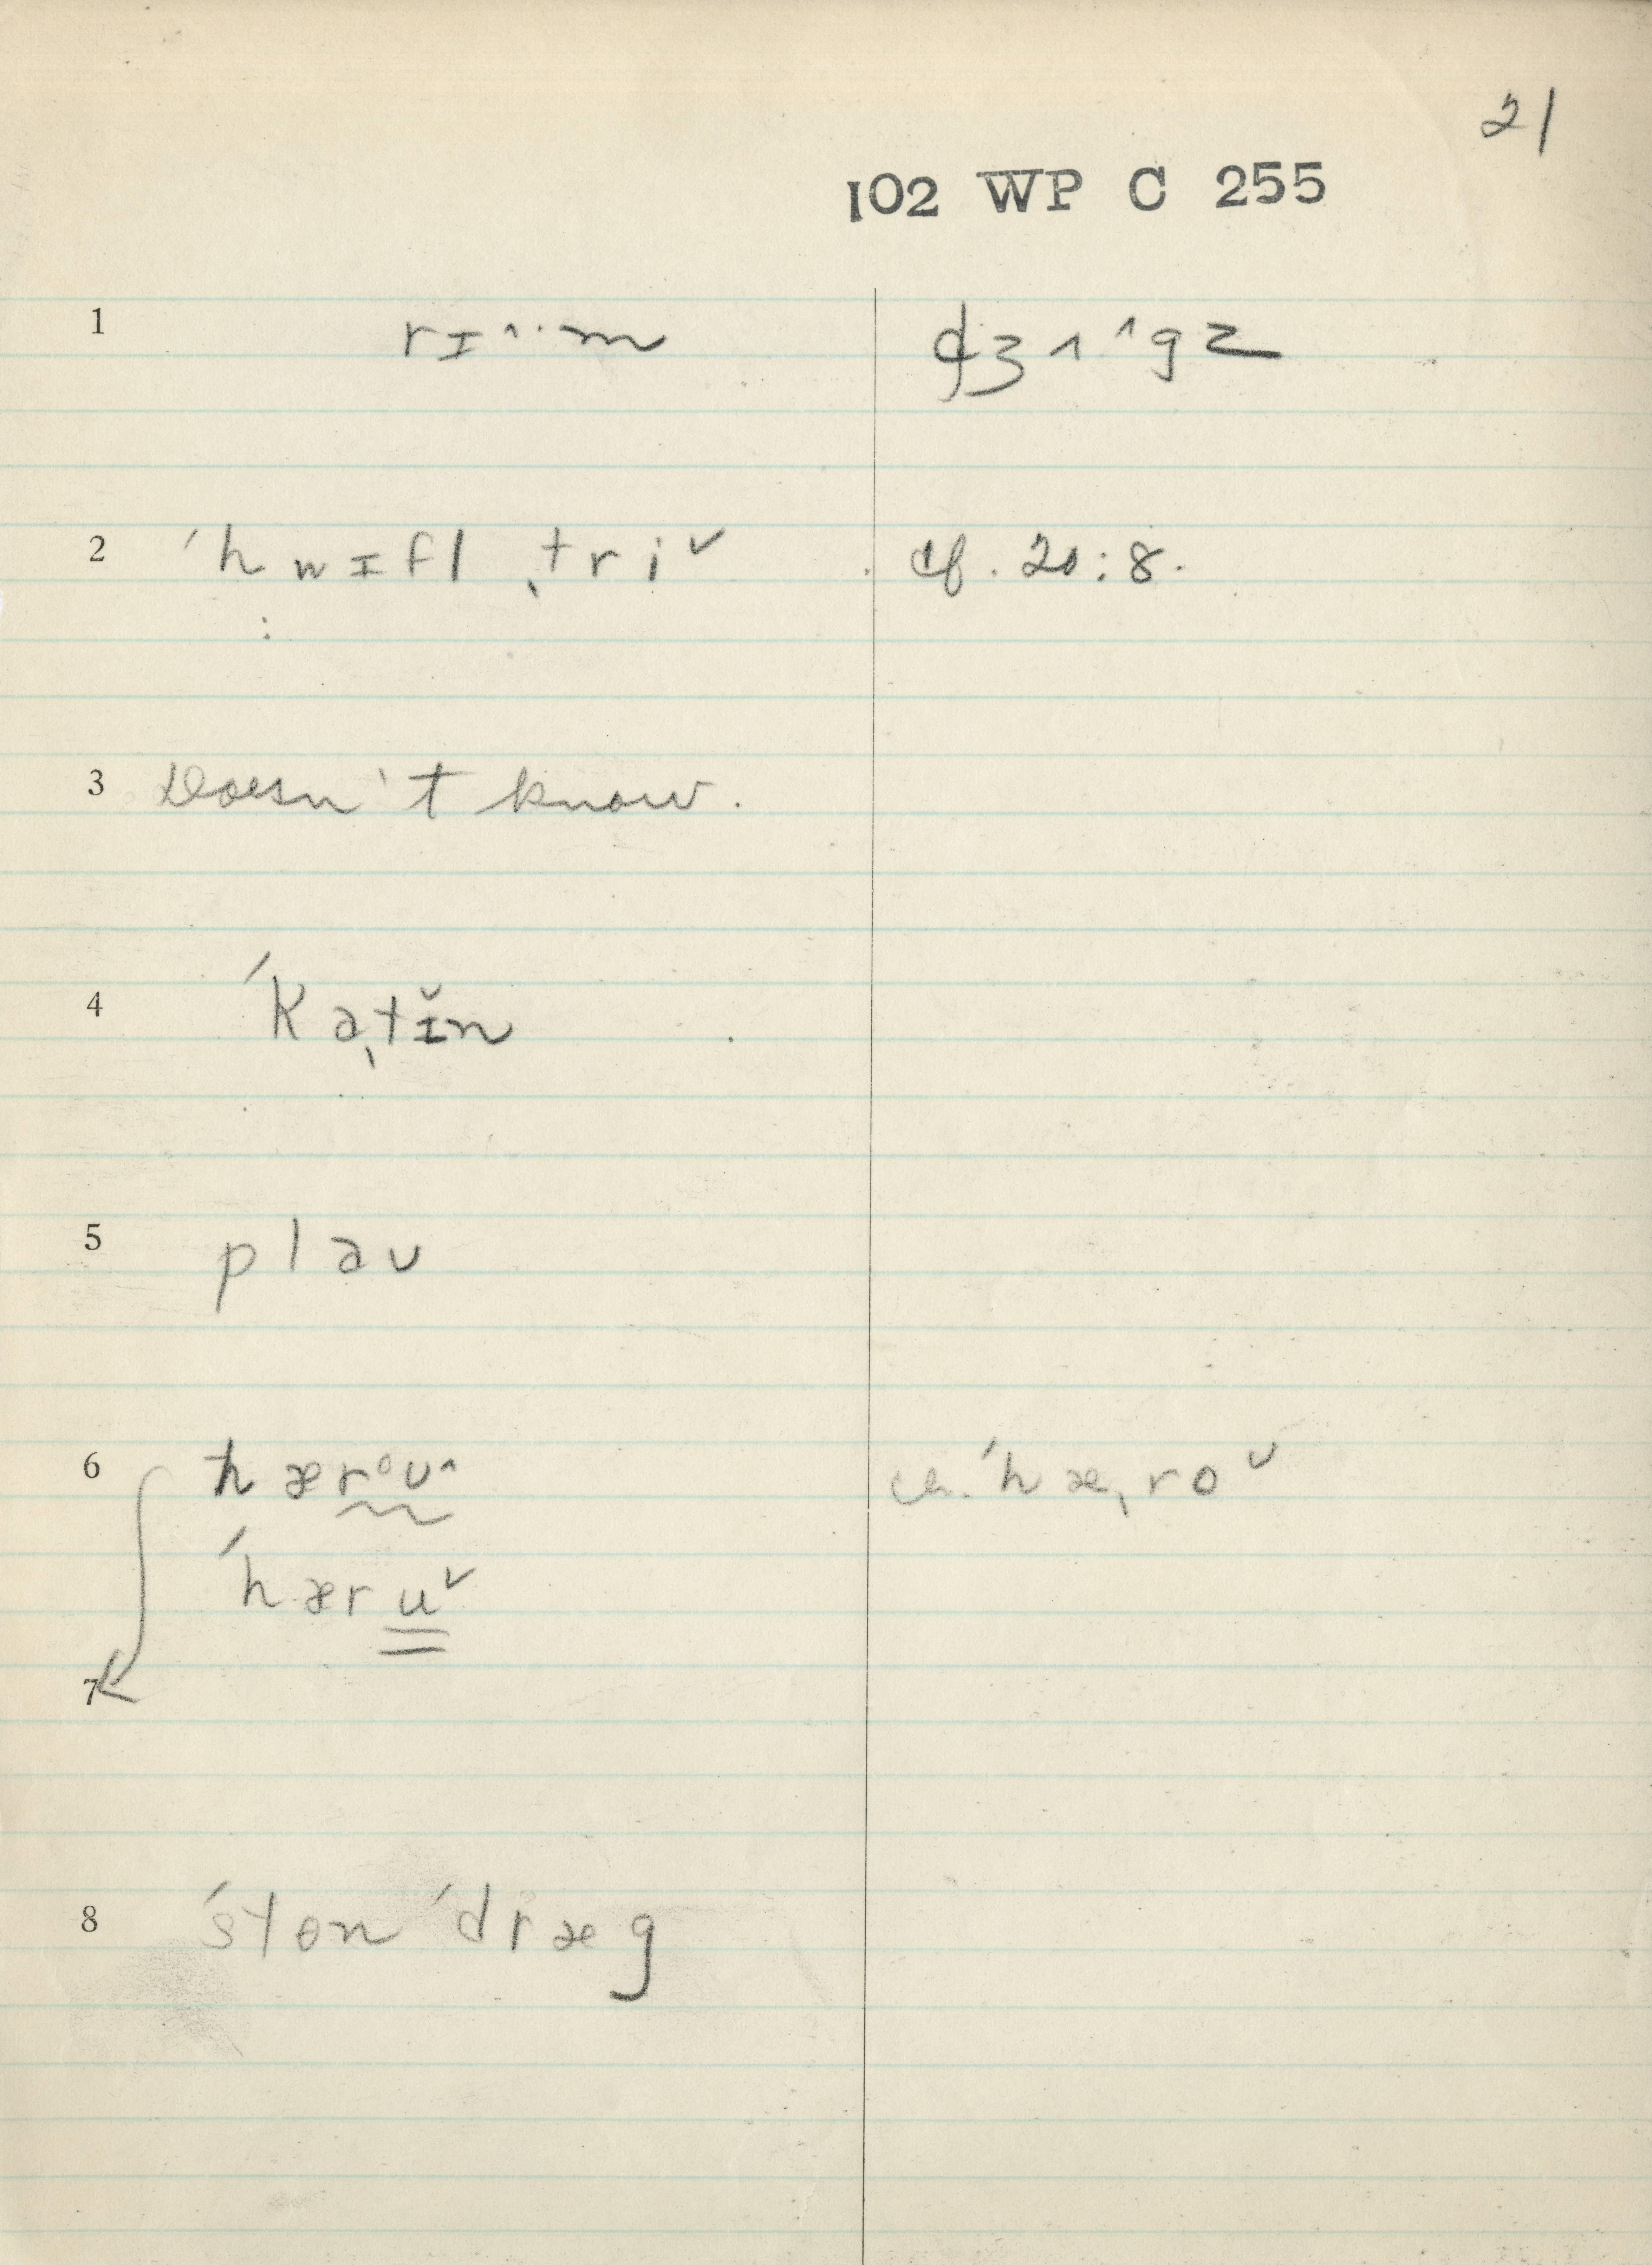 21
102 WP C 255
1 rɪ^··m dʒʌ^gz
2 ˈhwɪfl ˌtri˅ cf. 20:8.
3 Doesn't know.
4 ˈkaˌtɪ̆n
5 plaʊ
6 hærᵒʊ^ ˈhæˌro˅
ˈhæru˅
7
8 ˈstɵn ˈdræg